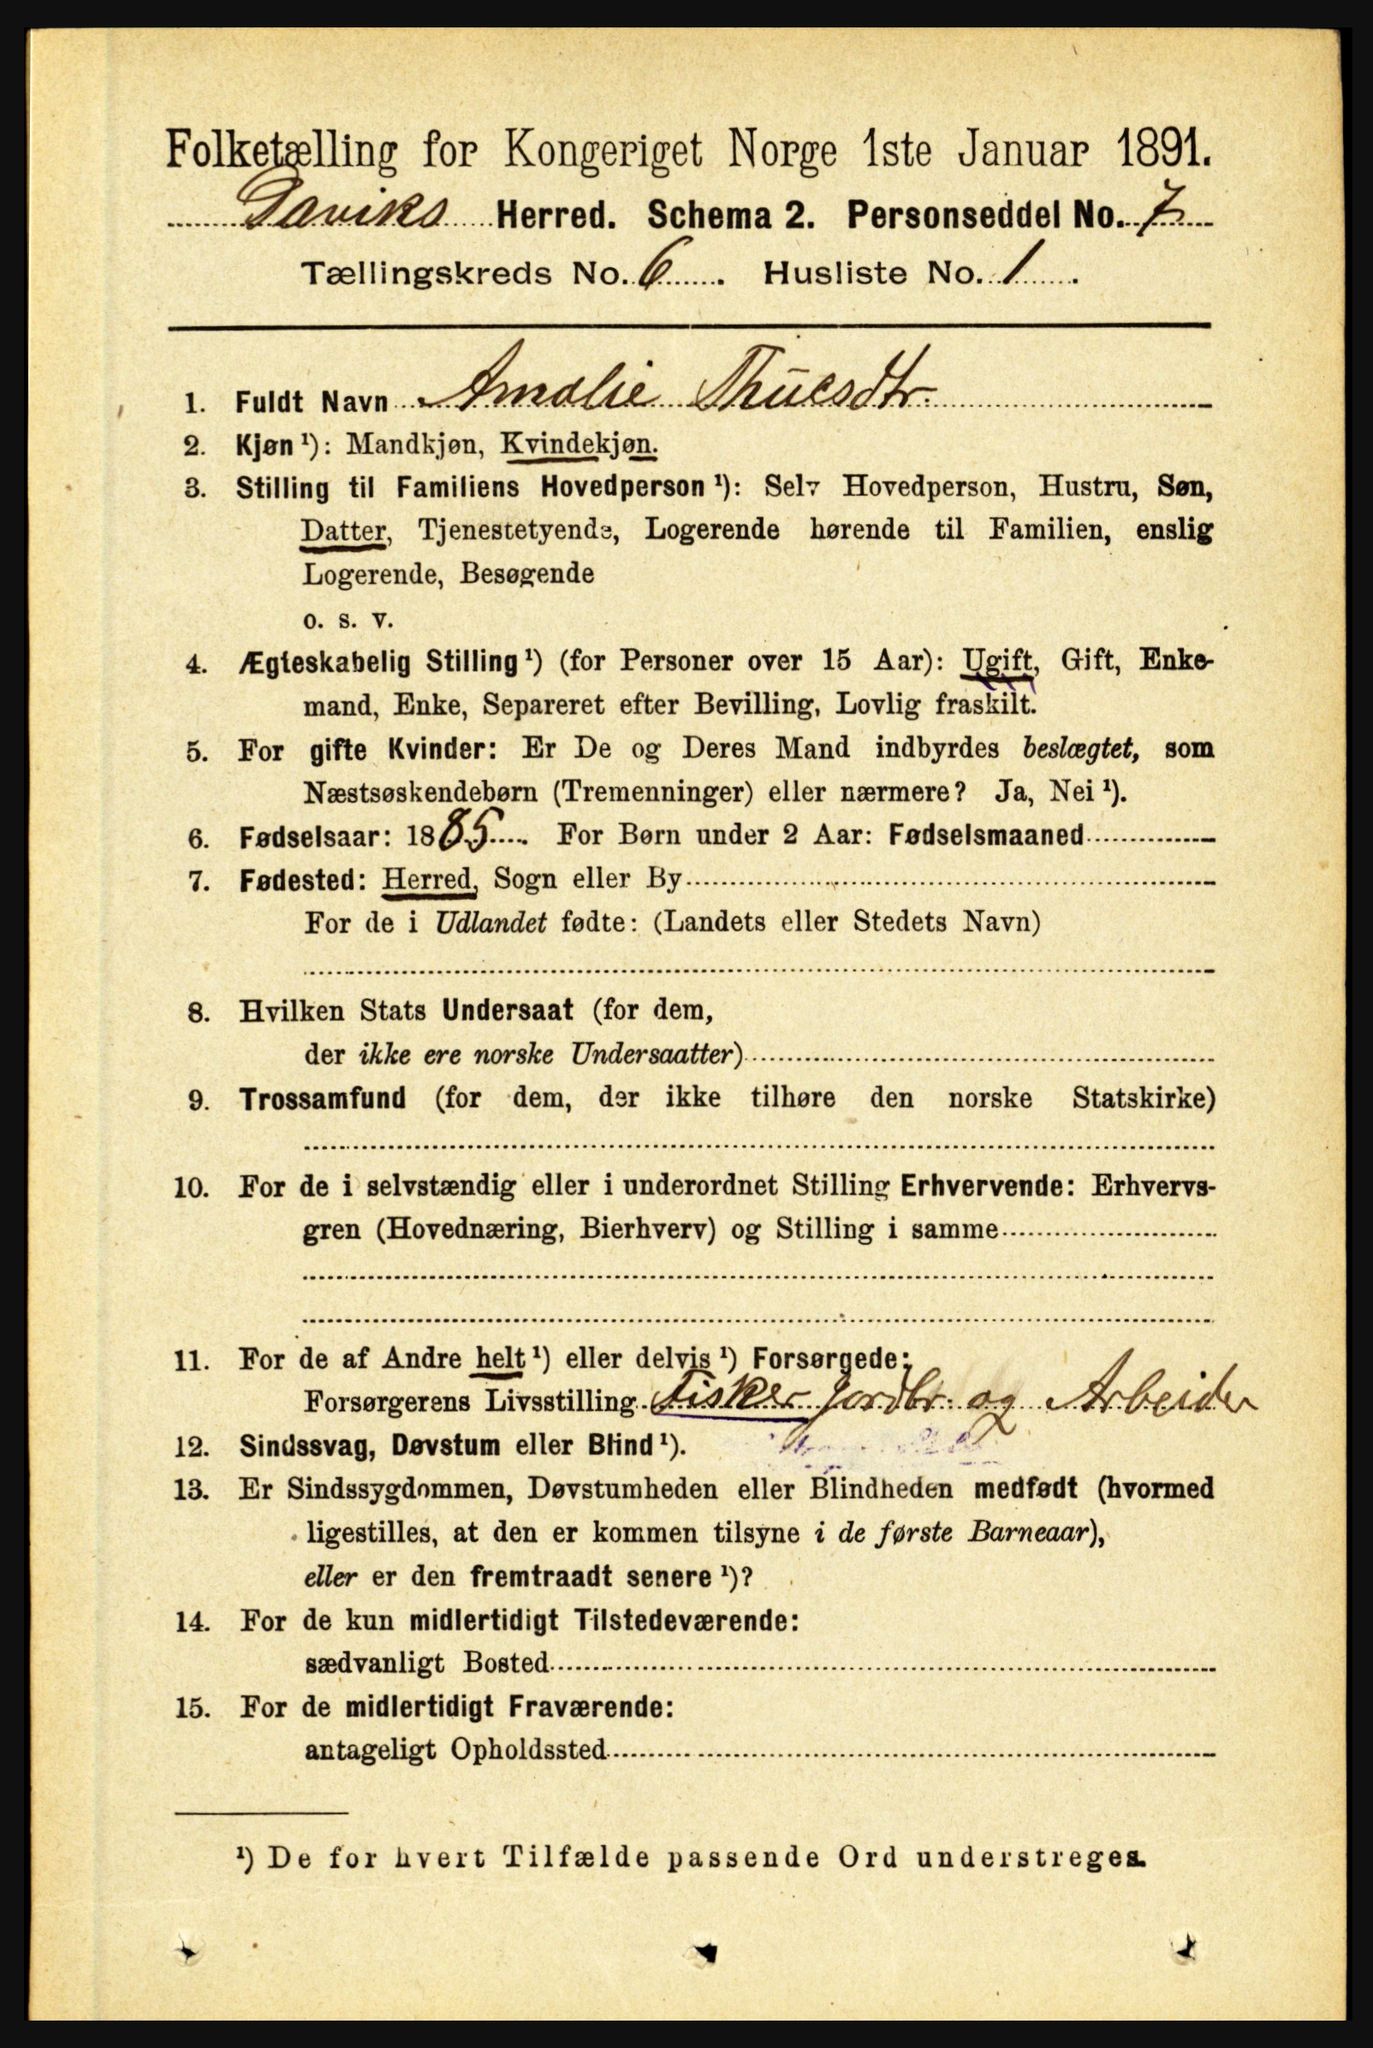 Folketælling for Kongeriget Norge 1ste Januar 1891.
Daviks Herred. Schema 2. Personseddel No. 7
Tællingskreds No. 6. Husliste No. 1.
1. Fuldt Navn Amalie Thuesdtr.
2. Kjøn ¹): Mandkjøn, Kvindekjøn.
3. Stilling til Familiens Hovedperson ¹): Selv Hovedperson, Hustru, Søn,
Datter, Tjenestetyende, Logerende hørende til Familien, enslig
Logerende, Besøgende
o. s. v.
4. Ægteskabelig Stilling ¹) (for Personer over 15 Aar): Ugift, Gift, Enke-
mand, Enke, Separeret efter Bevilling, Lovlig fraskilt.
5. For gifte Kvinder: Er De og Deres Mand indbyrdes beslægtet, som
Næstsøskendebørn (Tremenninger) eller nærmere? Ja, Nei ¹).
6. Fødselsaar: 1885. For Børn under 2 Aar: Fødselsmaaned
7. Fødested: Herred, Sogn eller By
For de i Udlandet fødte: (Landets eller Stedets Navn)
8. Hvilken Stats Undersaat (for dem,
der ikke ere norske Undersaatter)
9. Trossamfund (for dem, der ikke tilhøre den norske Statskirke)
10. For de i selvstændig eller i underordnet Stilling Erhvervende: Erhvervs-
gren (Hovednæring, Bierhverv) og Stilling i samme
11. For de af Andre helt ¹) eller delvis ¹) Forsørgede:
Forsørgerens Livsstilling Fisker Jordbr. og Arbeider
12. Sindssvag, Døvstum eller Blind ¹).
13. Er Sindssygdommen, Døvstumheden eller Blindheden medfødt (hvormed
ligestilles, at den er kommen tilsyne i de første Barneaar),
eller er den fremtraadt senere ¹)?
14. For de kun midlertidigt Tilstedeværende:
sædvanligt Bosted
15. For de midlertidigt Fraværende:
antageligt Opholdssted
¹) De for hvert Tilfælde passende Ord understreges.